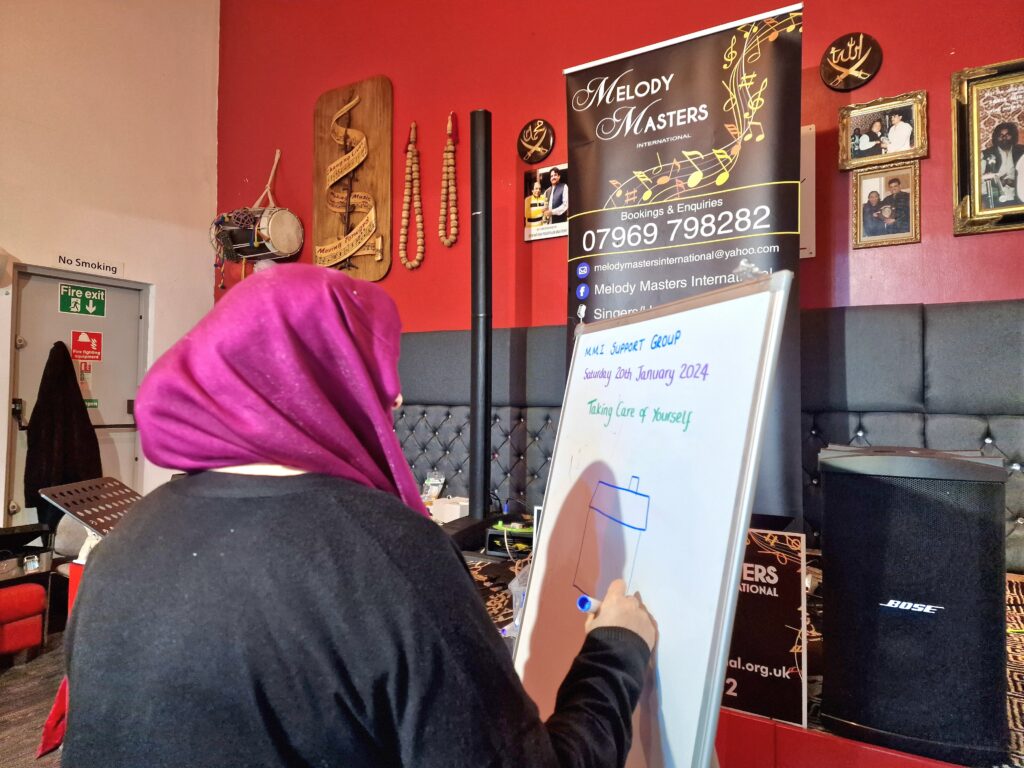 MELODY
MASTERS
INTERNATIONAL
Bookings & Enquiries
07969 798282
melodymastersinternational@yahoo.com
Melody Masters Internat
Singers/
M.M.I SUPPORT GROUP
Saturday 20th January 2024
Taking Care of Yourself
No Smoking
Fire exit
Fire fighting
equipment
BOSE
ERS
NATIONAL
al.org.uk
2